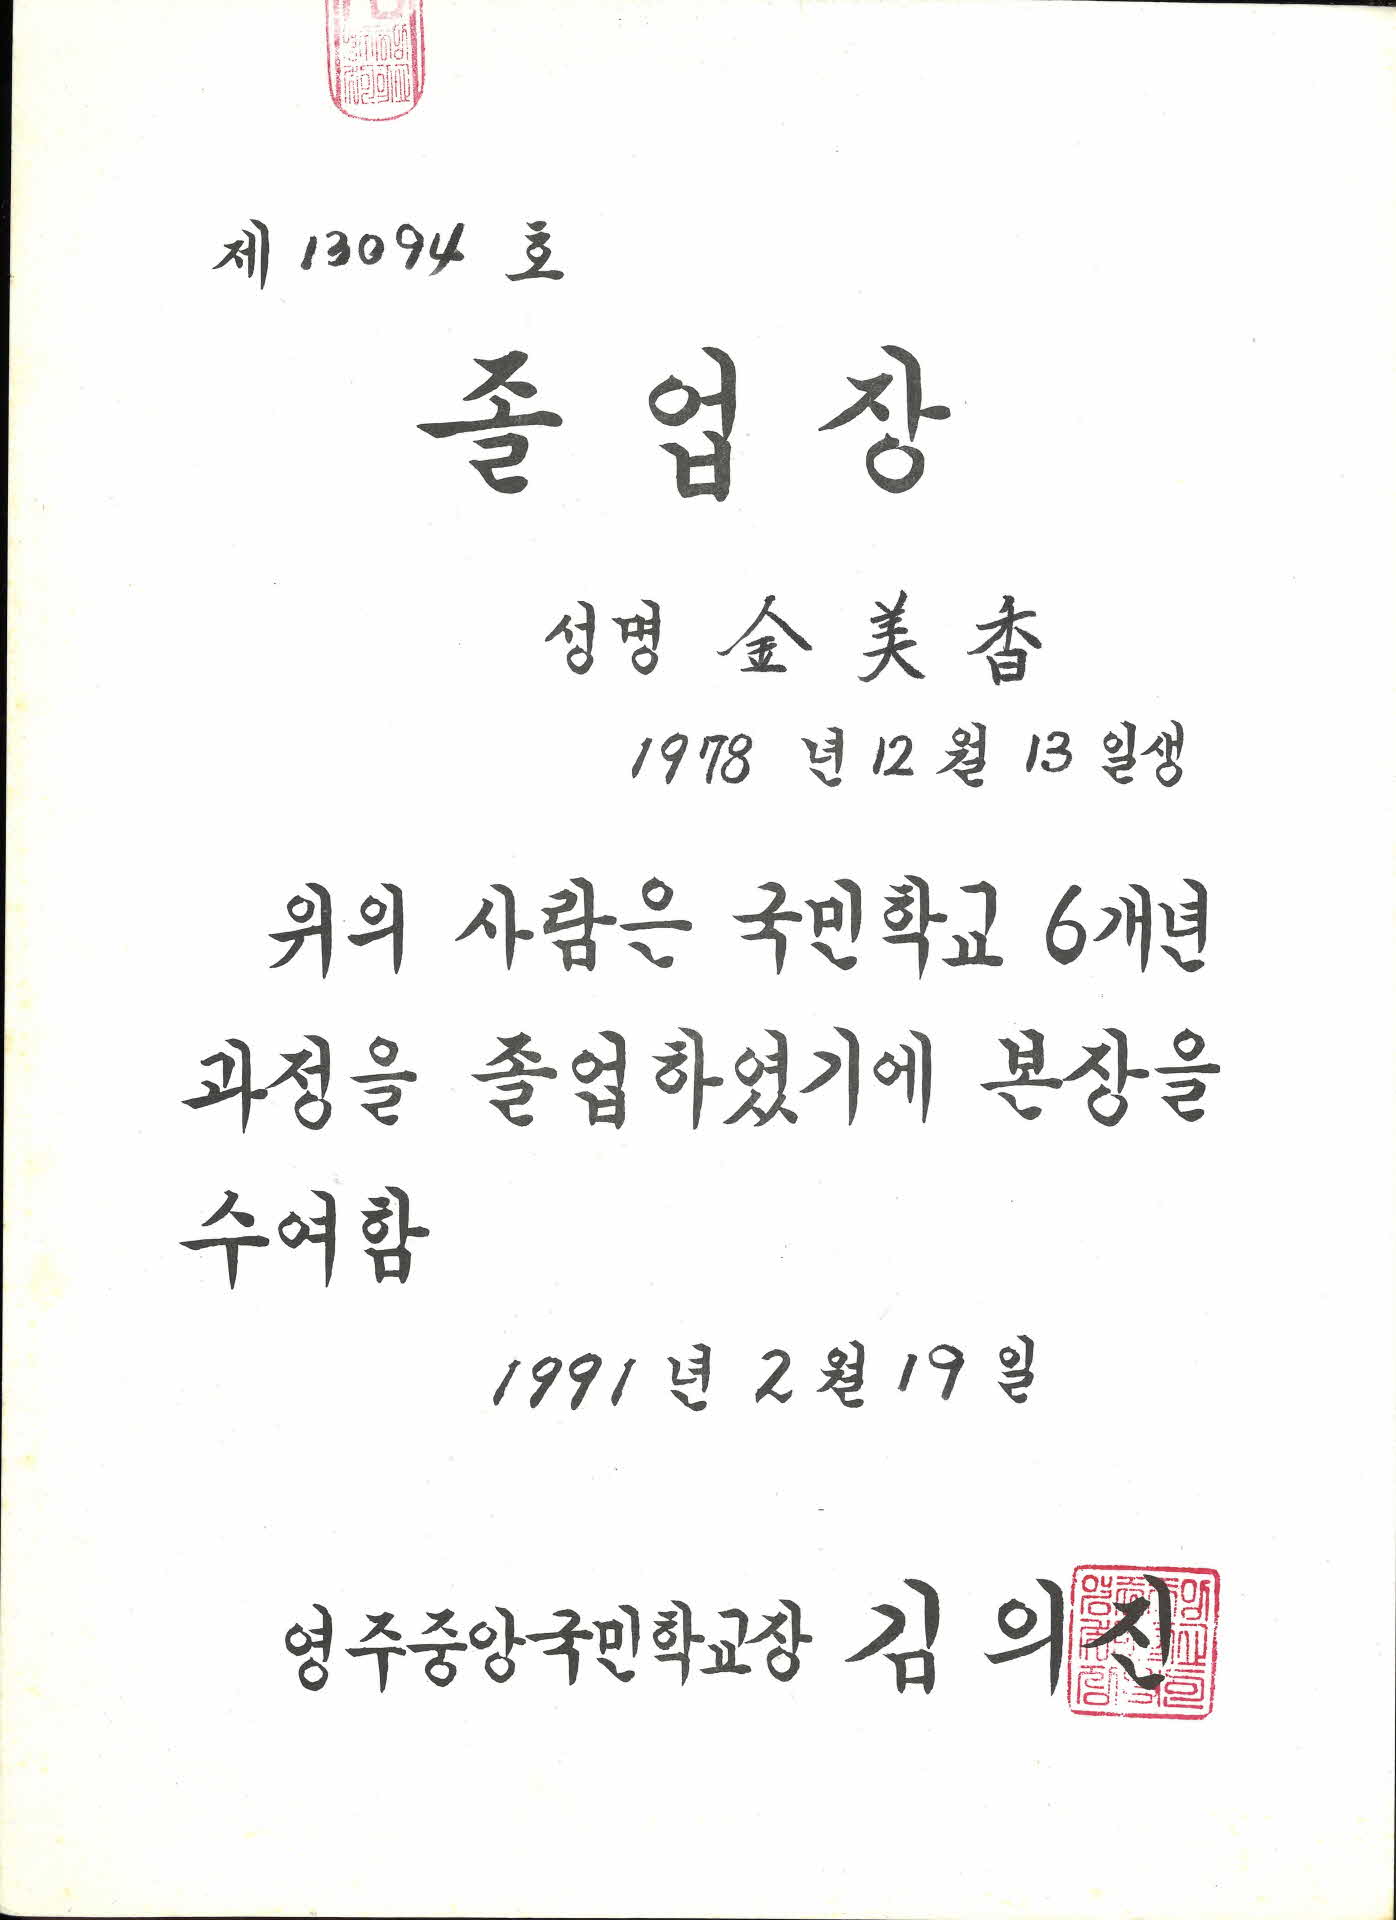 제 13094 호
졸업장
성명 金美香
1978 년 12 월 13 일생
위의 사람은 국민학교 6개년
과정을 졸업하였기에 본장을
수여함
1991 년 2 월 19 일
영주중앙국민학교장 김의진